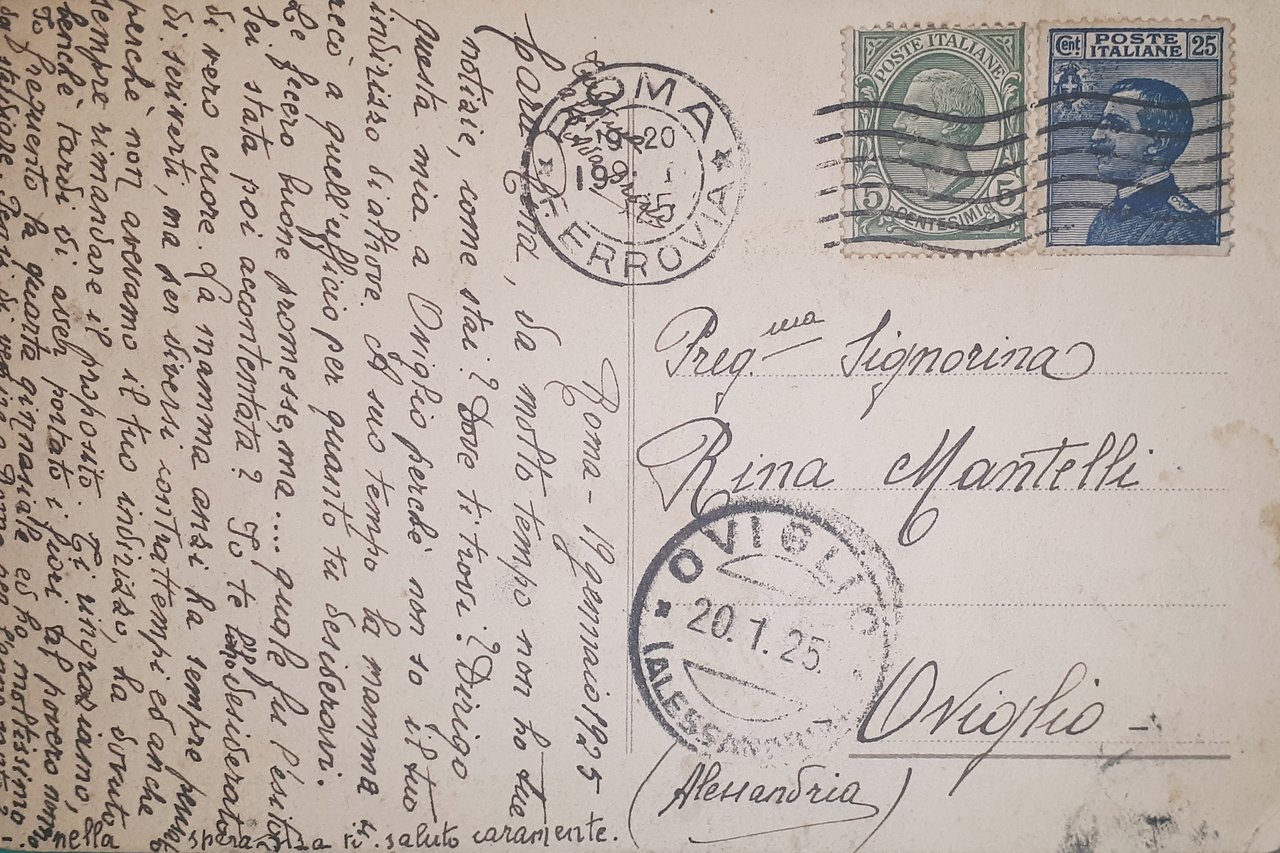 ROMA FERROVIA
19-20
19 1
25
POSTE ITALIANE
5 5
CENTESIMI
Cent. POSTE ITALIANE 25
Preg.ma Signorina
Rina Mantelli
OVIGLIO
20.1.25
(ALESSANDRIA)
Oviglio -
(Alessandria)
Roma - 19 gennaio 1925 -
Cara Rina, da molto tempo non ho tue
notizie, come stai? Dove ti trovi? Dirigo
questa mia a Oviglio perchè non so il tuo
indirizzo di altrove. A suo tempo la mamma si
recò a quell'ufficio per quanto tu desideravi.
Le fecero buone promesse, ma.... quale fu l'esito?
Sei stata poi accontentata? Io te lo desidero
di vero cuore. La mamma anzi ha sempre
di scriverti, ma per diversi contrattempi ed anche
perchè non avevamo il tuo indirizzo, ha dovuto
sempre rimandare il proposito. Ti ringraziamo,
benchè tardi di aver portato i fiori al povero nonno.
Io frequento la quarta ginnasiale ed ho moltissimo
da studiare. Pensi di venire a Roma
nella speranza ti saluto caramente.